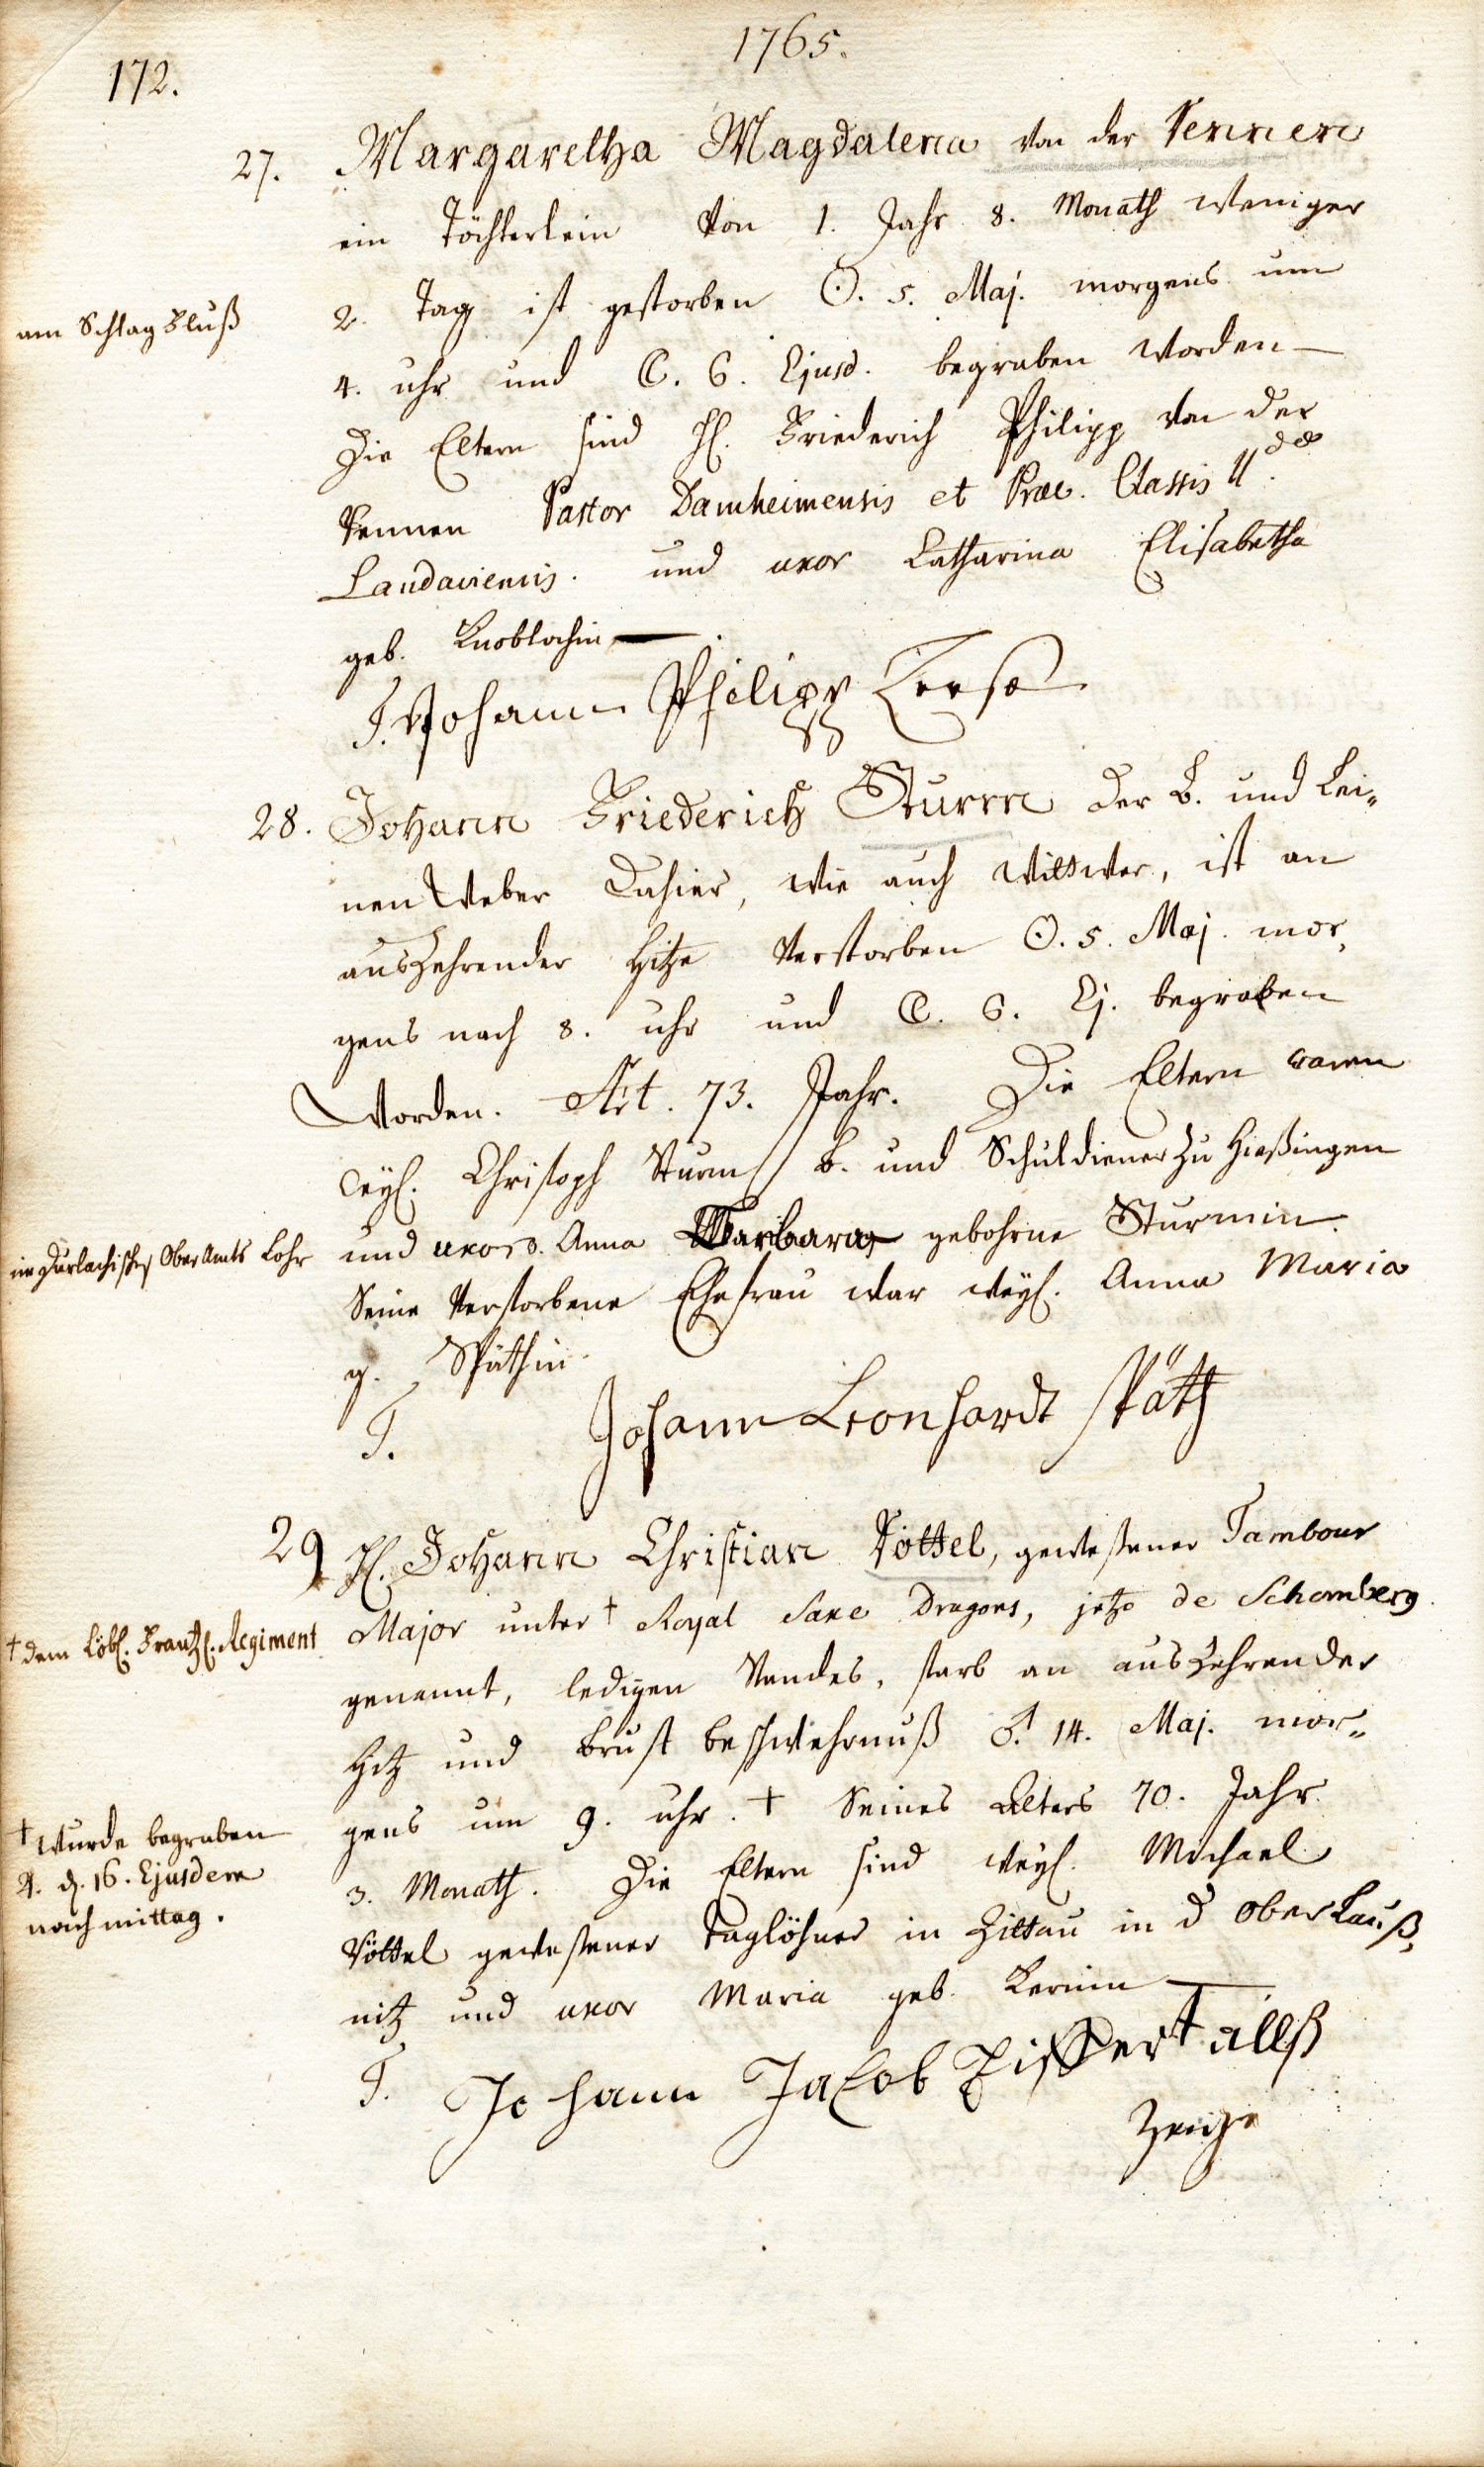 172.
1765.
27. Margaretha Magdalena von der Tennen
ein Töchterlein von 1. Jahr 8. Monath weniger
am Schlagfluß
2. Tag ist gestorben ☉. 5. Maj. morgens um
4. uhr und ☾. 6. Ejusd. begraben worden —
Die Eltern sind H. Friederich Philipp von der
Tennen Pastor Damheimensis et Præs. Classis II.dæ
Landaviensis. und uxor Catharina Elisabetha
geb. Knoblochin —
T. Johann Philipp
28. Johann Friederich Sturm der B. und Lei„
nen Weber Dahier, wie auch Wittwer, ist an
auszehrender Hitze verstorben ☉. 5. Maj. mor„
gens nach 8. uhr und ☾. 6. Ej. begraben
worden. Æt. 73. Jahr. Die Eltern waren
weyl. Christoph Sturm B. und Schuldiener zu Hießingen
im Durlachischen Ober Amts Lohr
und uxor. Anna Barbara gebohrne Sturmin.
Seine verstorbene Ehefrau war weyl. Anna Maria
g. Späthin.
T. Johann Leonhardt Späth
29 H. Johann Christian Töttel, gewesener Tambour
Major unter † Royal Saxe Dragons, jetzo de Schomberg
† dem Löbl. Frantz. Regiment
genannt, ledigen Standes, starb an auszehrender
Hitz und Brust beschwehrnuß ♂. 14. Maj. mor„
gens um 9. uhr. † Seines Alters 70. Jahr
† wurde begraben
♃. d. 16. Ejusdem
nach mittag.
3. Monath. Die Eltern sind weyl. Michael
Töttel gewesener Taglöhner in Zittau in d Ober Lauß„
nitz und uxor Maria geb. —
T. Johann Jacob allß
Zeuge